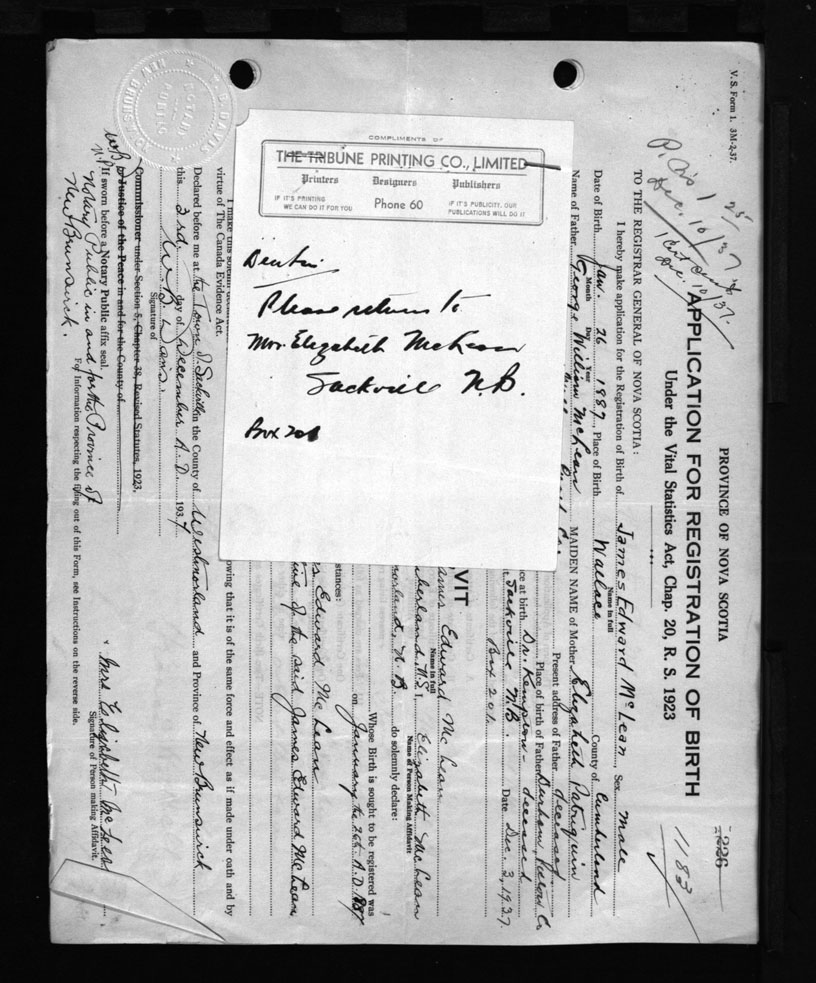 V. S. Form 1. 3M-2-37.
PROVINCE OF NOVA SCOTIA
APPLICATION FOR REGISTRATION OF BIRTH
Under the Vital Statistics Act, Chap. 20, R. S. 1923
226
1183
P. O's 1 25
Dec. 10/37
Dec. 10/37.
TO THE REGISTRAR GENERAL OF NOVA SCOTIA:
I hereby make application for the Registration of Birth of James Edward McLean, Sex Male
Name in full
Date of Birth Jan. 26 1887, Place of Birth Wallace County of Cumberland
Month Day Year
Name of Father George William McLean MAIDEN NAME of Mother Elizabeth Patriquin
Present address of Father deceased
Place of birth of Father Durham, Pictou Co
ce at birth Dr. Kempton - deceased
Sackville N.B. Date Dec. 3, 1937.
Box 201.
COMPLIMENTS OF
THE TRIBUNE PRINTING CO., LIMITED
Printers Designers Publishers
IF IT'S PRINTING
WE CAN DO IT FOR YOU
Phone 60
IF IT'S PUBLICITY, OUR
PUBLICATIONS WILL DO IT
Please return to
Mrs. Elizabeth McLean
Sackville N.B.
Box 201
VIT
ames Edward McLean
Name in full
berland, N.S. I, Elizabeth McLean
Name of Person Making Affidavit
morland, N. B. do solemnly declare:
Whose Birth is sought to be registered was
on January the 26th A.D. 1887
stances:
s Edward McLean
of the said James Edward McLean
I make this solemn
owing that it is of the same force and effect as if made under oath and by
virtue of The Canada Evidence Act.
Declared before me at the Town of Sackville in the County of Westmorland and Province of New Brunswick
this 3rd. day of December A. D. 1937
W. B. Davis.
Signature of
Mrs Elizabeth McLean
Signature of Person making Affidavit.
Commissioner under Section 5, Chapter 38, Revised Statutes, 1923.
or Justice of the Peace in and for the County of
If sworn before a Notary Public affix seal.
Notary Public in and for the Province of
New Brunswick.
For Information respecting the filling out of this Form, see Instructions on the reverse side.
W. B. DAVIS
NOTARY
PUBLIC